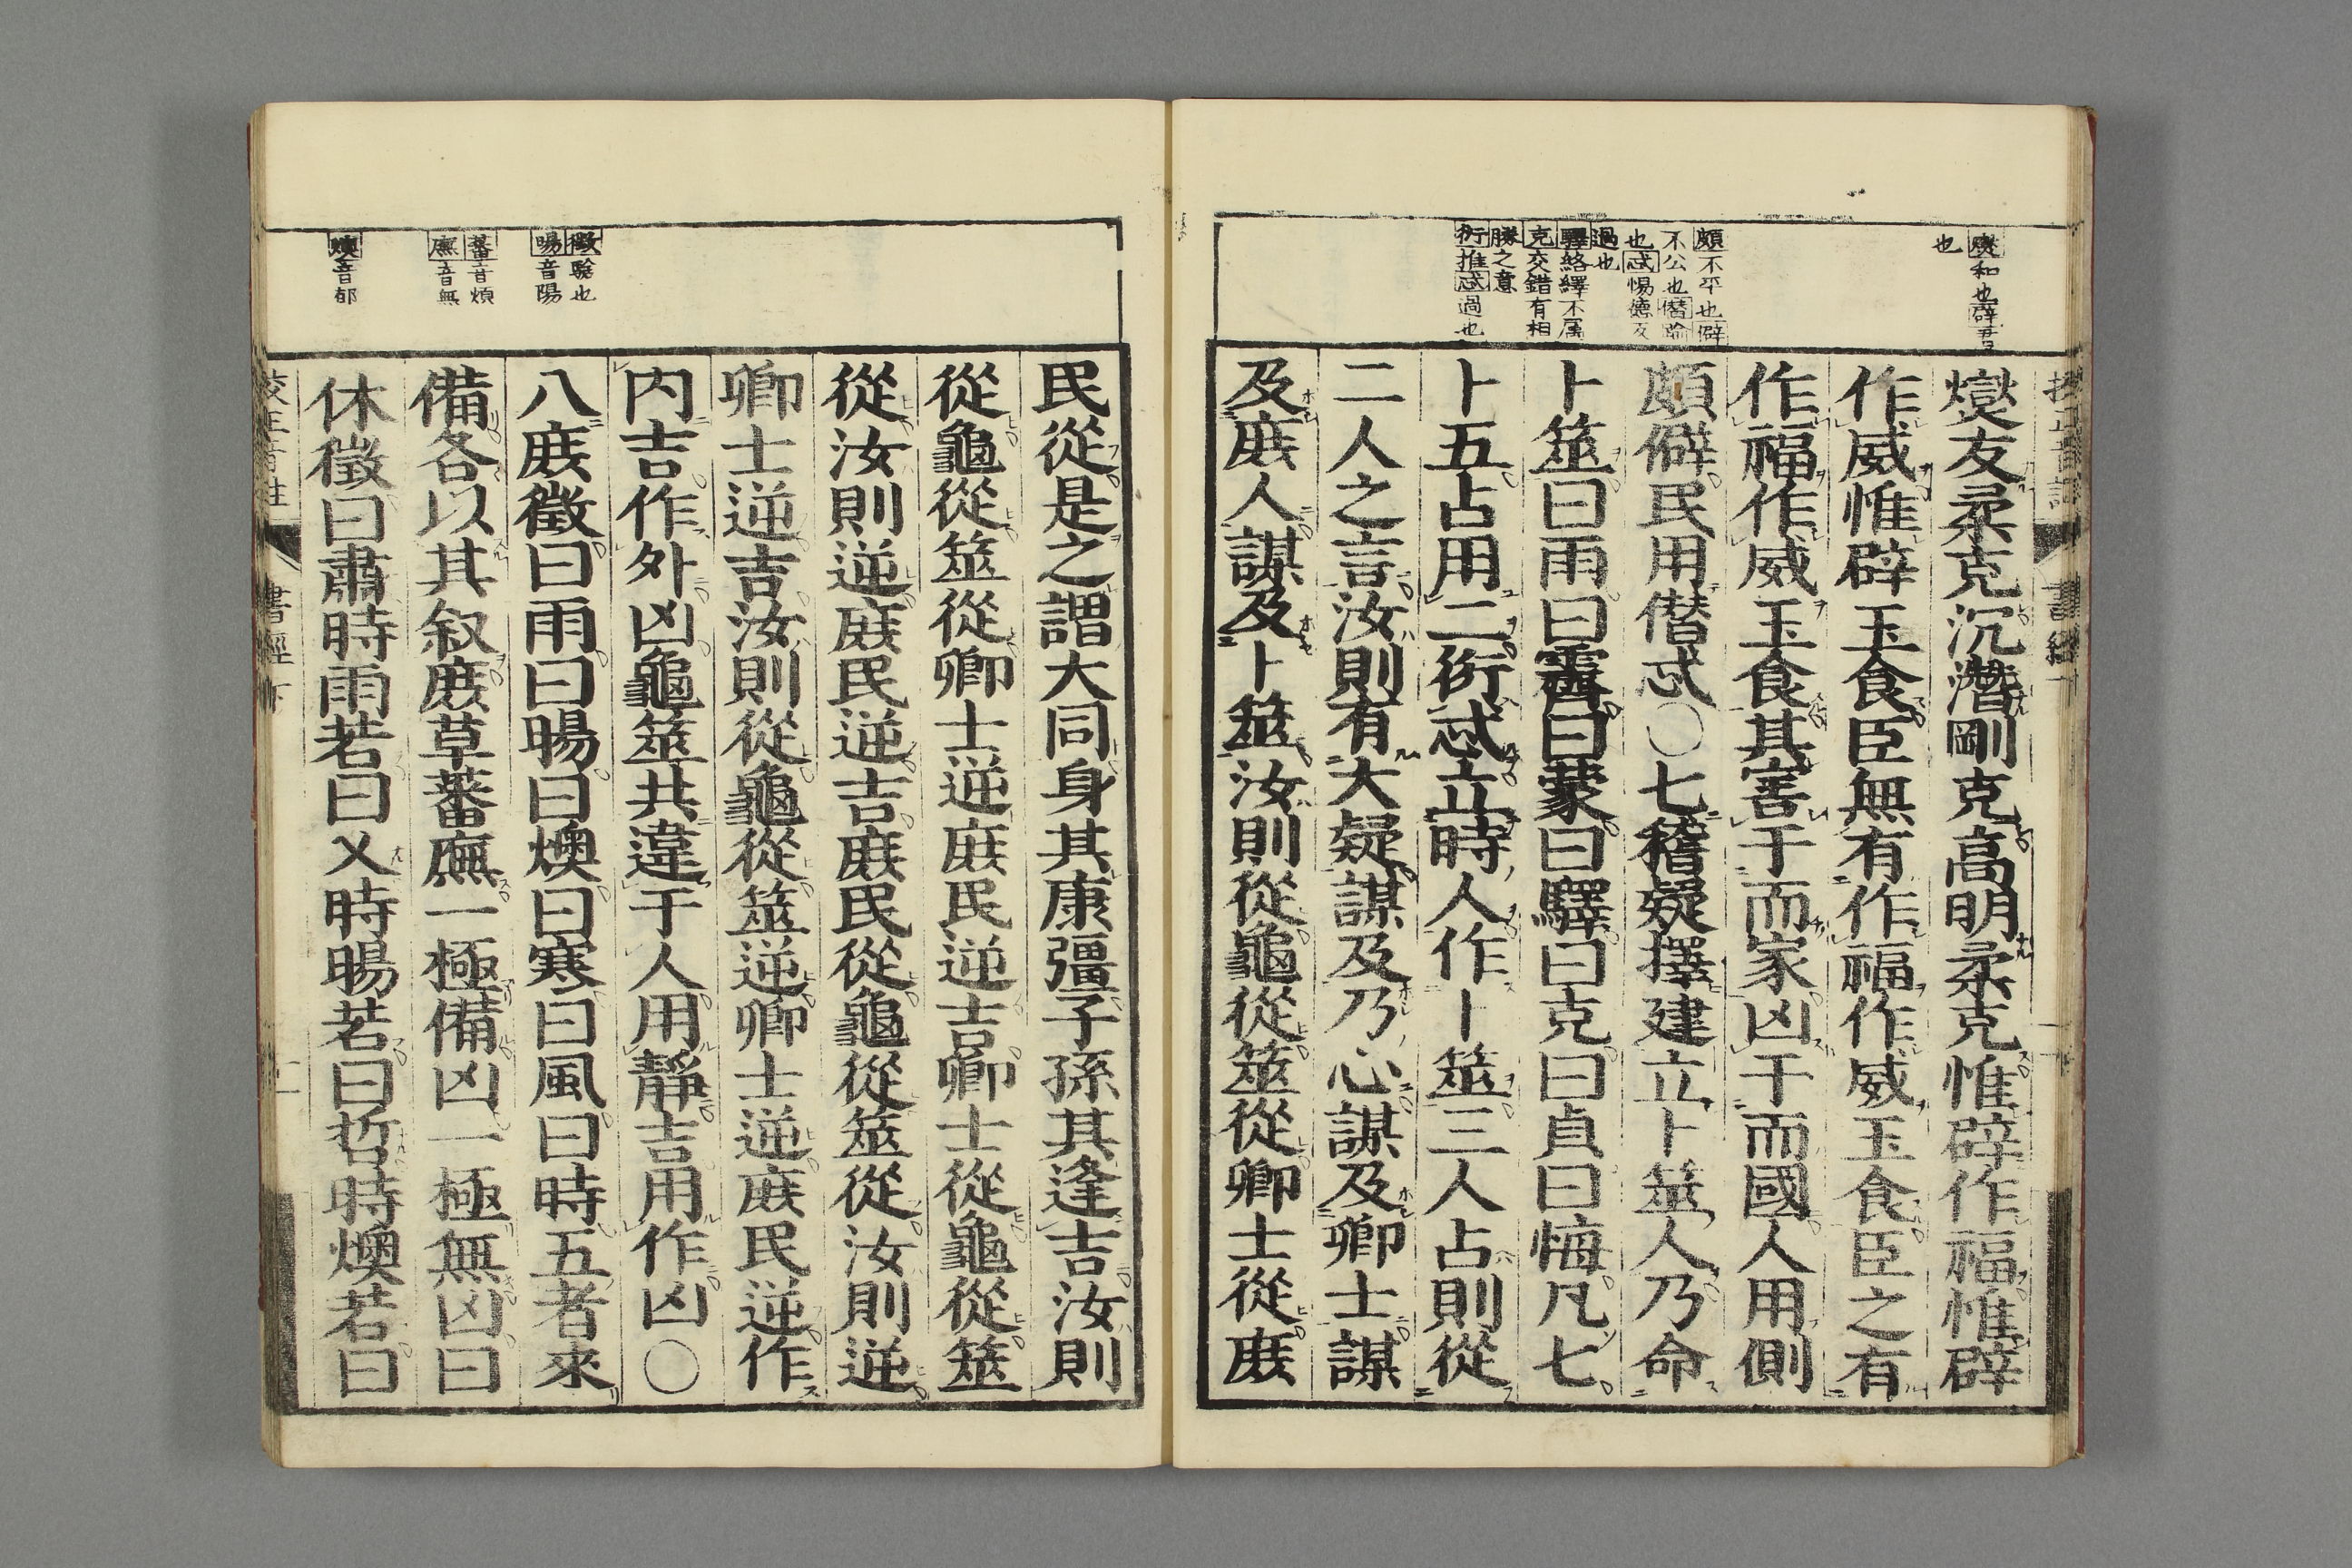 燮和也辟君
也
頗不平也僻
不公也僭踰
也忒惕德反
過也
驛絡繹不属
克交錯有相
勝之意
衍推忒過也
燮友柔克沉潛剛克高明柔克惟辟作福惟辟
作威惟辟玉食臣無有作福作威玉食臣之有
作福作威玉食其害于而家凶于而國人用側
頗僻民用僭忒○七稽疑擇建立卜筮人乃命
卜筮曰雨曰霽曰蒙曰驛曰克曰貞曰悔凡七
卜五占用二衍忒立時人作卜筮三人占則從
二人之言汝則有大疑謀及乃心謀及卿士謀
及庶人謀及卜筮汝則從龜從筮從卿士從庶
徵驗也
暘音陽
蕃音煩
廡音無
燠音郁
民從是之謂大同身其康彊子孫其逢吉汝則
從龜從筮從卿士逆庶民逆吉卿士從龜從筮
從汝則逆庶民逆吉庶民從龜從筮從汝則逆
卿士逆吉汝則從龜從筮逆卿士逆庶民逆作
内吉作外凶龜筮共違于人用靜吉用作凶○
八庶徵曰雨曰暘曰燠曰寒曰風曰時五者來
備各以其叙庶草蕃廡一極備凶一極無凶曰
休徵曰肅時雨若曰乂時暘若曰哲時燠若曰
書經下